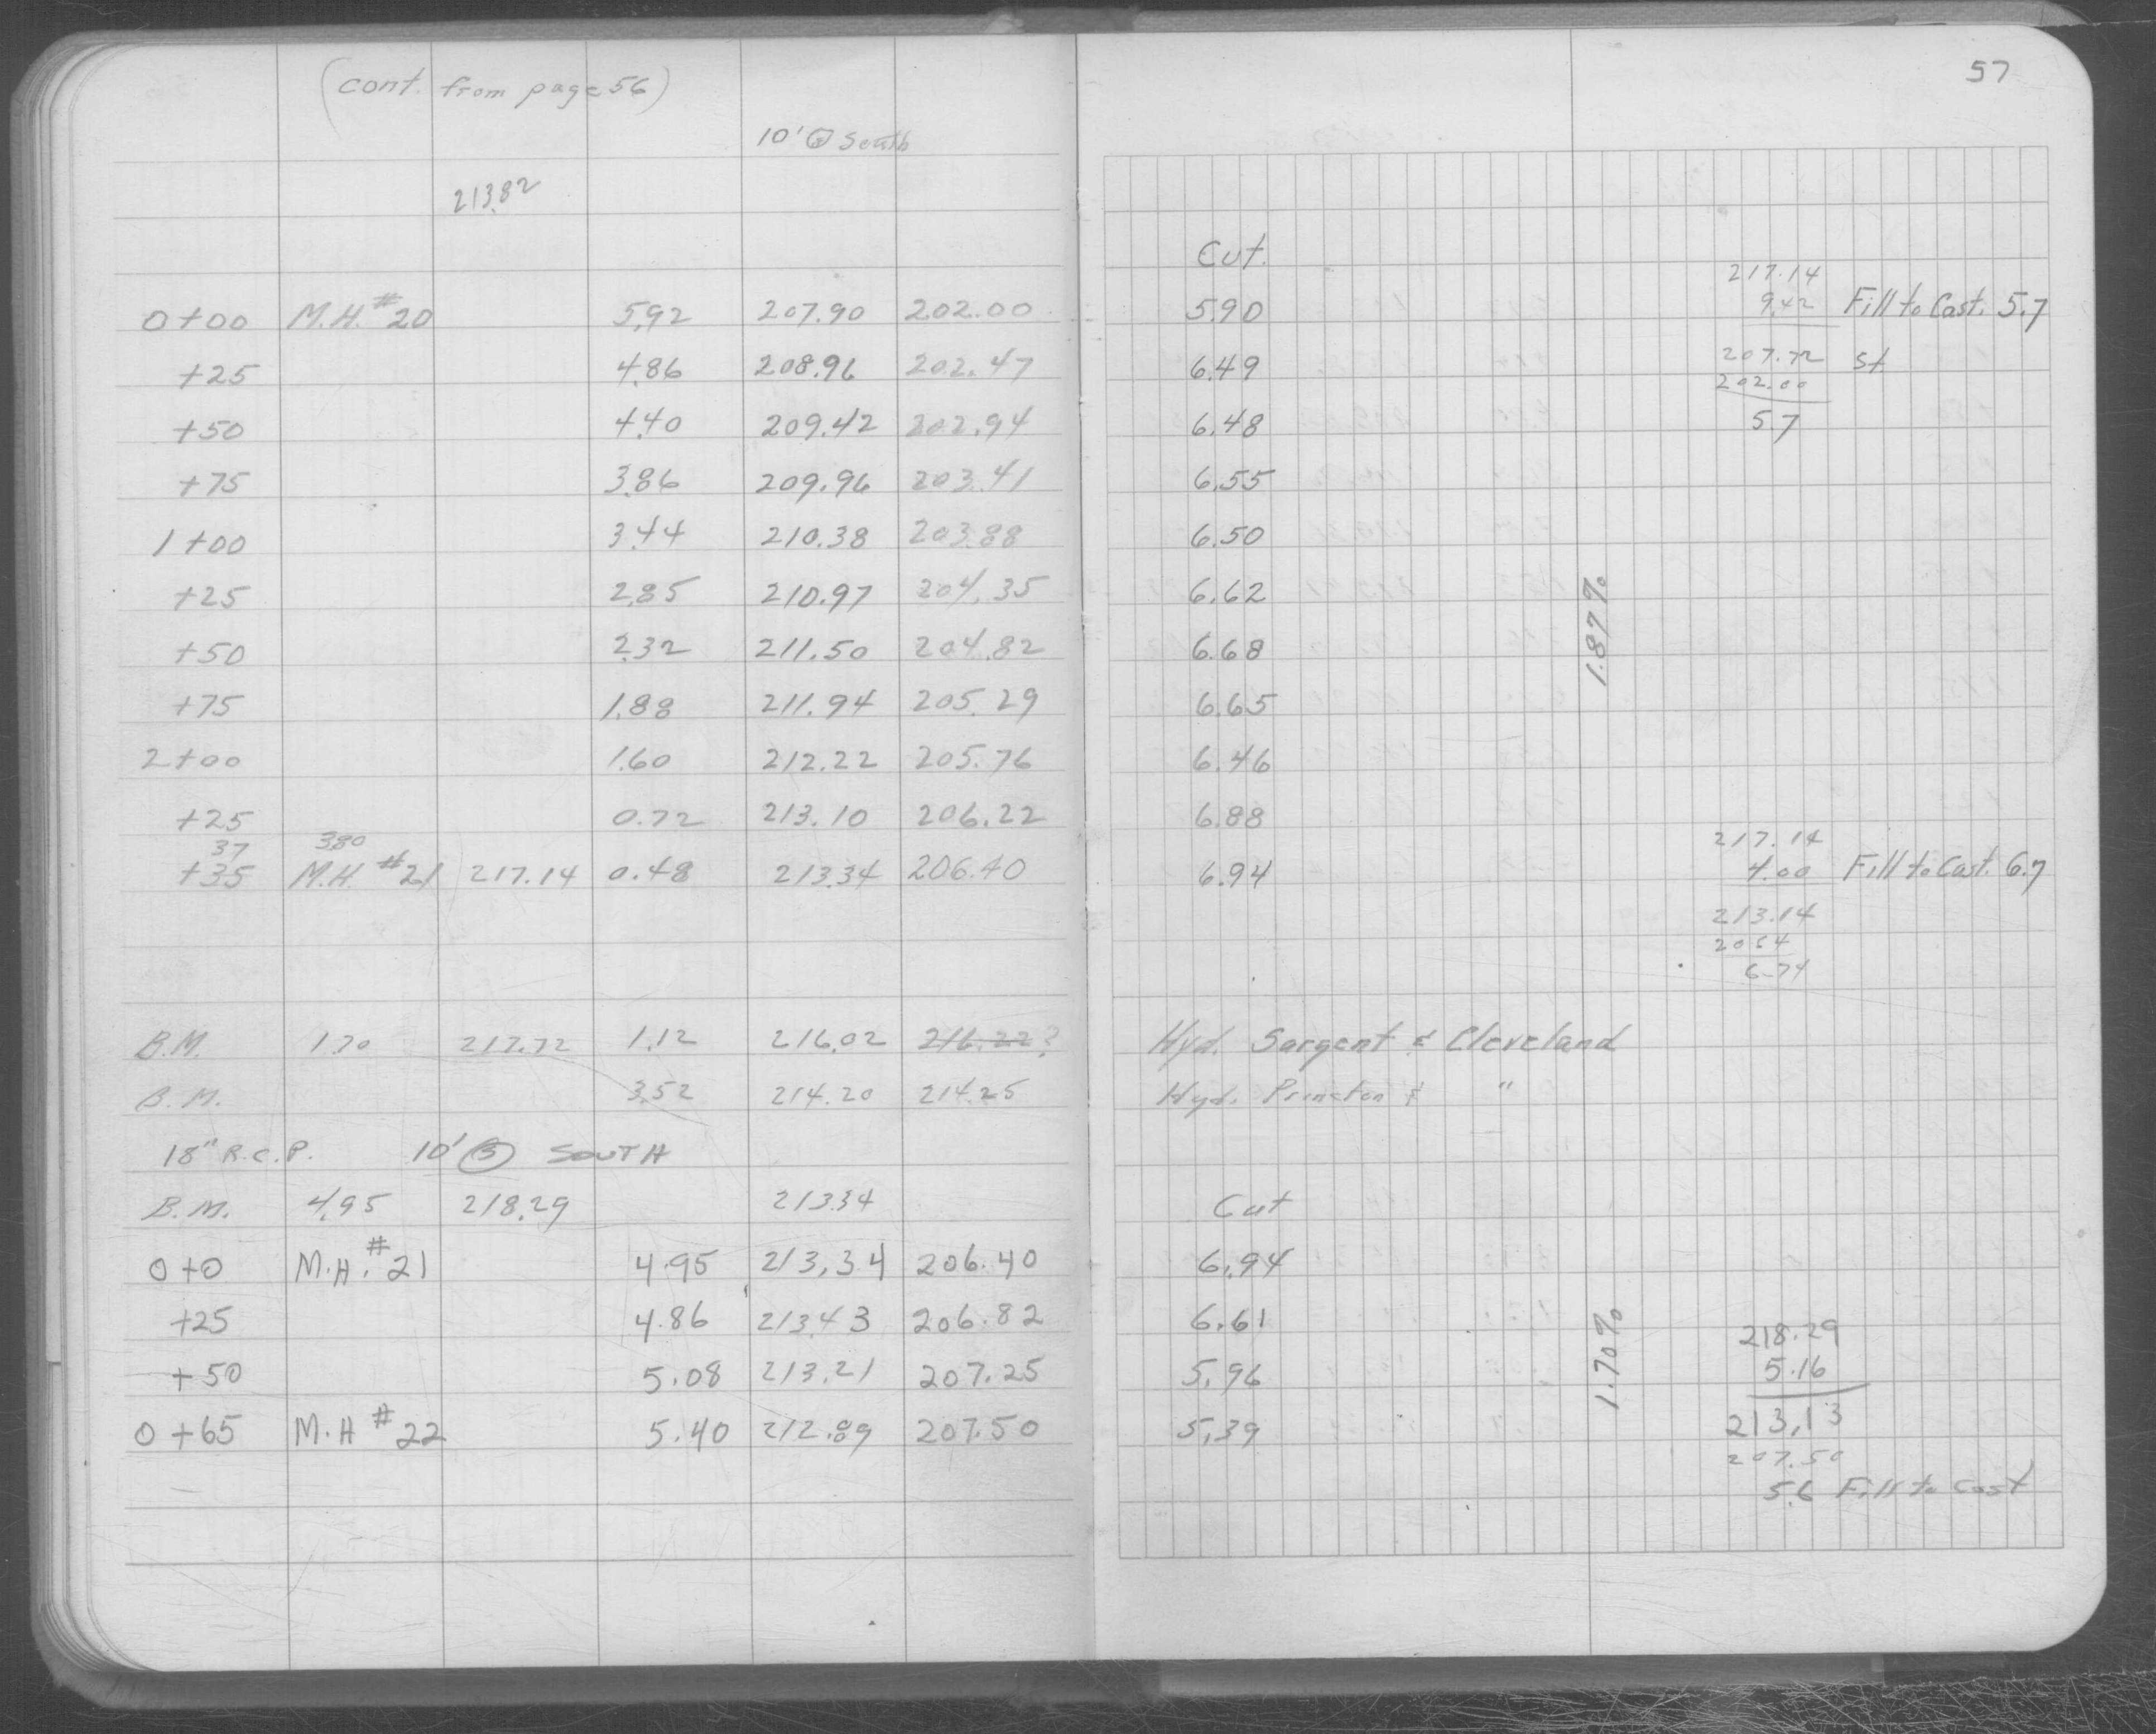 57
(cont. from page 56)
10' Ⓢ South
213.82
Cut.
217.14
0+00 M.H. #20 5.92 207.90 202.00 5.90 9.42 Fill to Cast. 5.7
+25 4.86 208.96 202.47 6.49 207.72 st
202.00
+50 4.40 209.42 202.94 6.48 5.7
+75 3.86 209.96 203.41 6.55
1+00 3.44 210.38 203.88 6.50
+25 2.85 210.97 204.35 6.62
1.87%
+50 2.32 211.50 204.82 6.68
+75 1.88 211.94 205.29 6.65
2+00 1.60 212.22 205.76 6.46
+25 0.72 213.10 206.22 6.88
37 3.80 217.14
+35 M.H. #21 217.14 0.48 213.34 206.40 6.94 4.00 Fill to Cast. 6.7
213.14
206.4
6.74
B.M. 1.70 217.72 1.12 216.02 216.22? Hyd. Sargent & Cleveland
B.M. 3.52 214.20 214.25 Hyd. Princeton & "
18" R.C.P. 10' Ⓢ SOUTH
B.M. 4.95 218.29 213.34 Cut
0+0 M.H. #21 4.95 213.34 206.40 6.94
+25 4.86 213.43 206.82 6.61
218.29
1.70%
+50 5.08 213.21 207.25 5.96 5.16
0+65 M.H #22 5.40 212.89 207.50 5.39 213.13
207.50
5.6 Fill to Cast